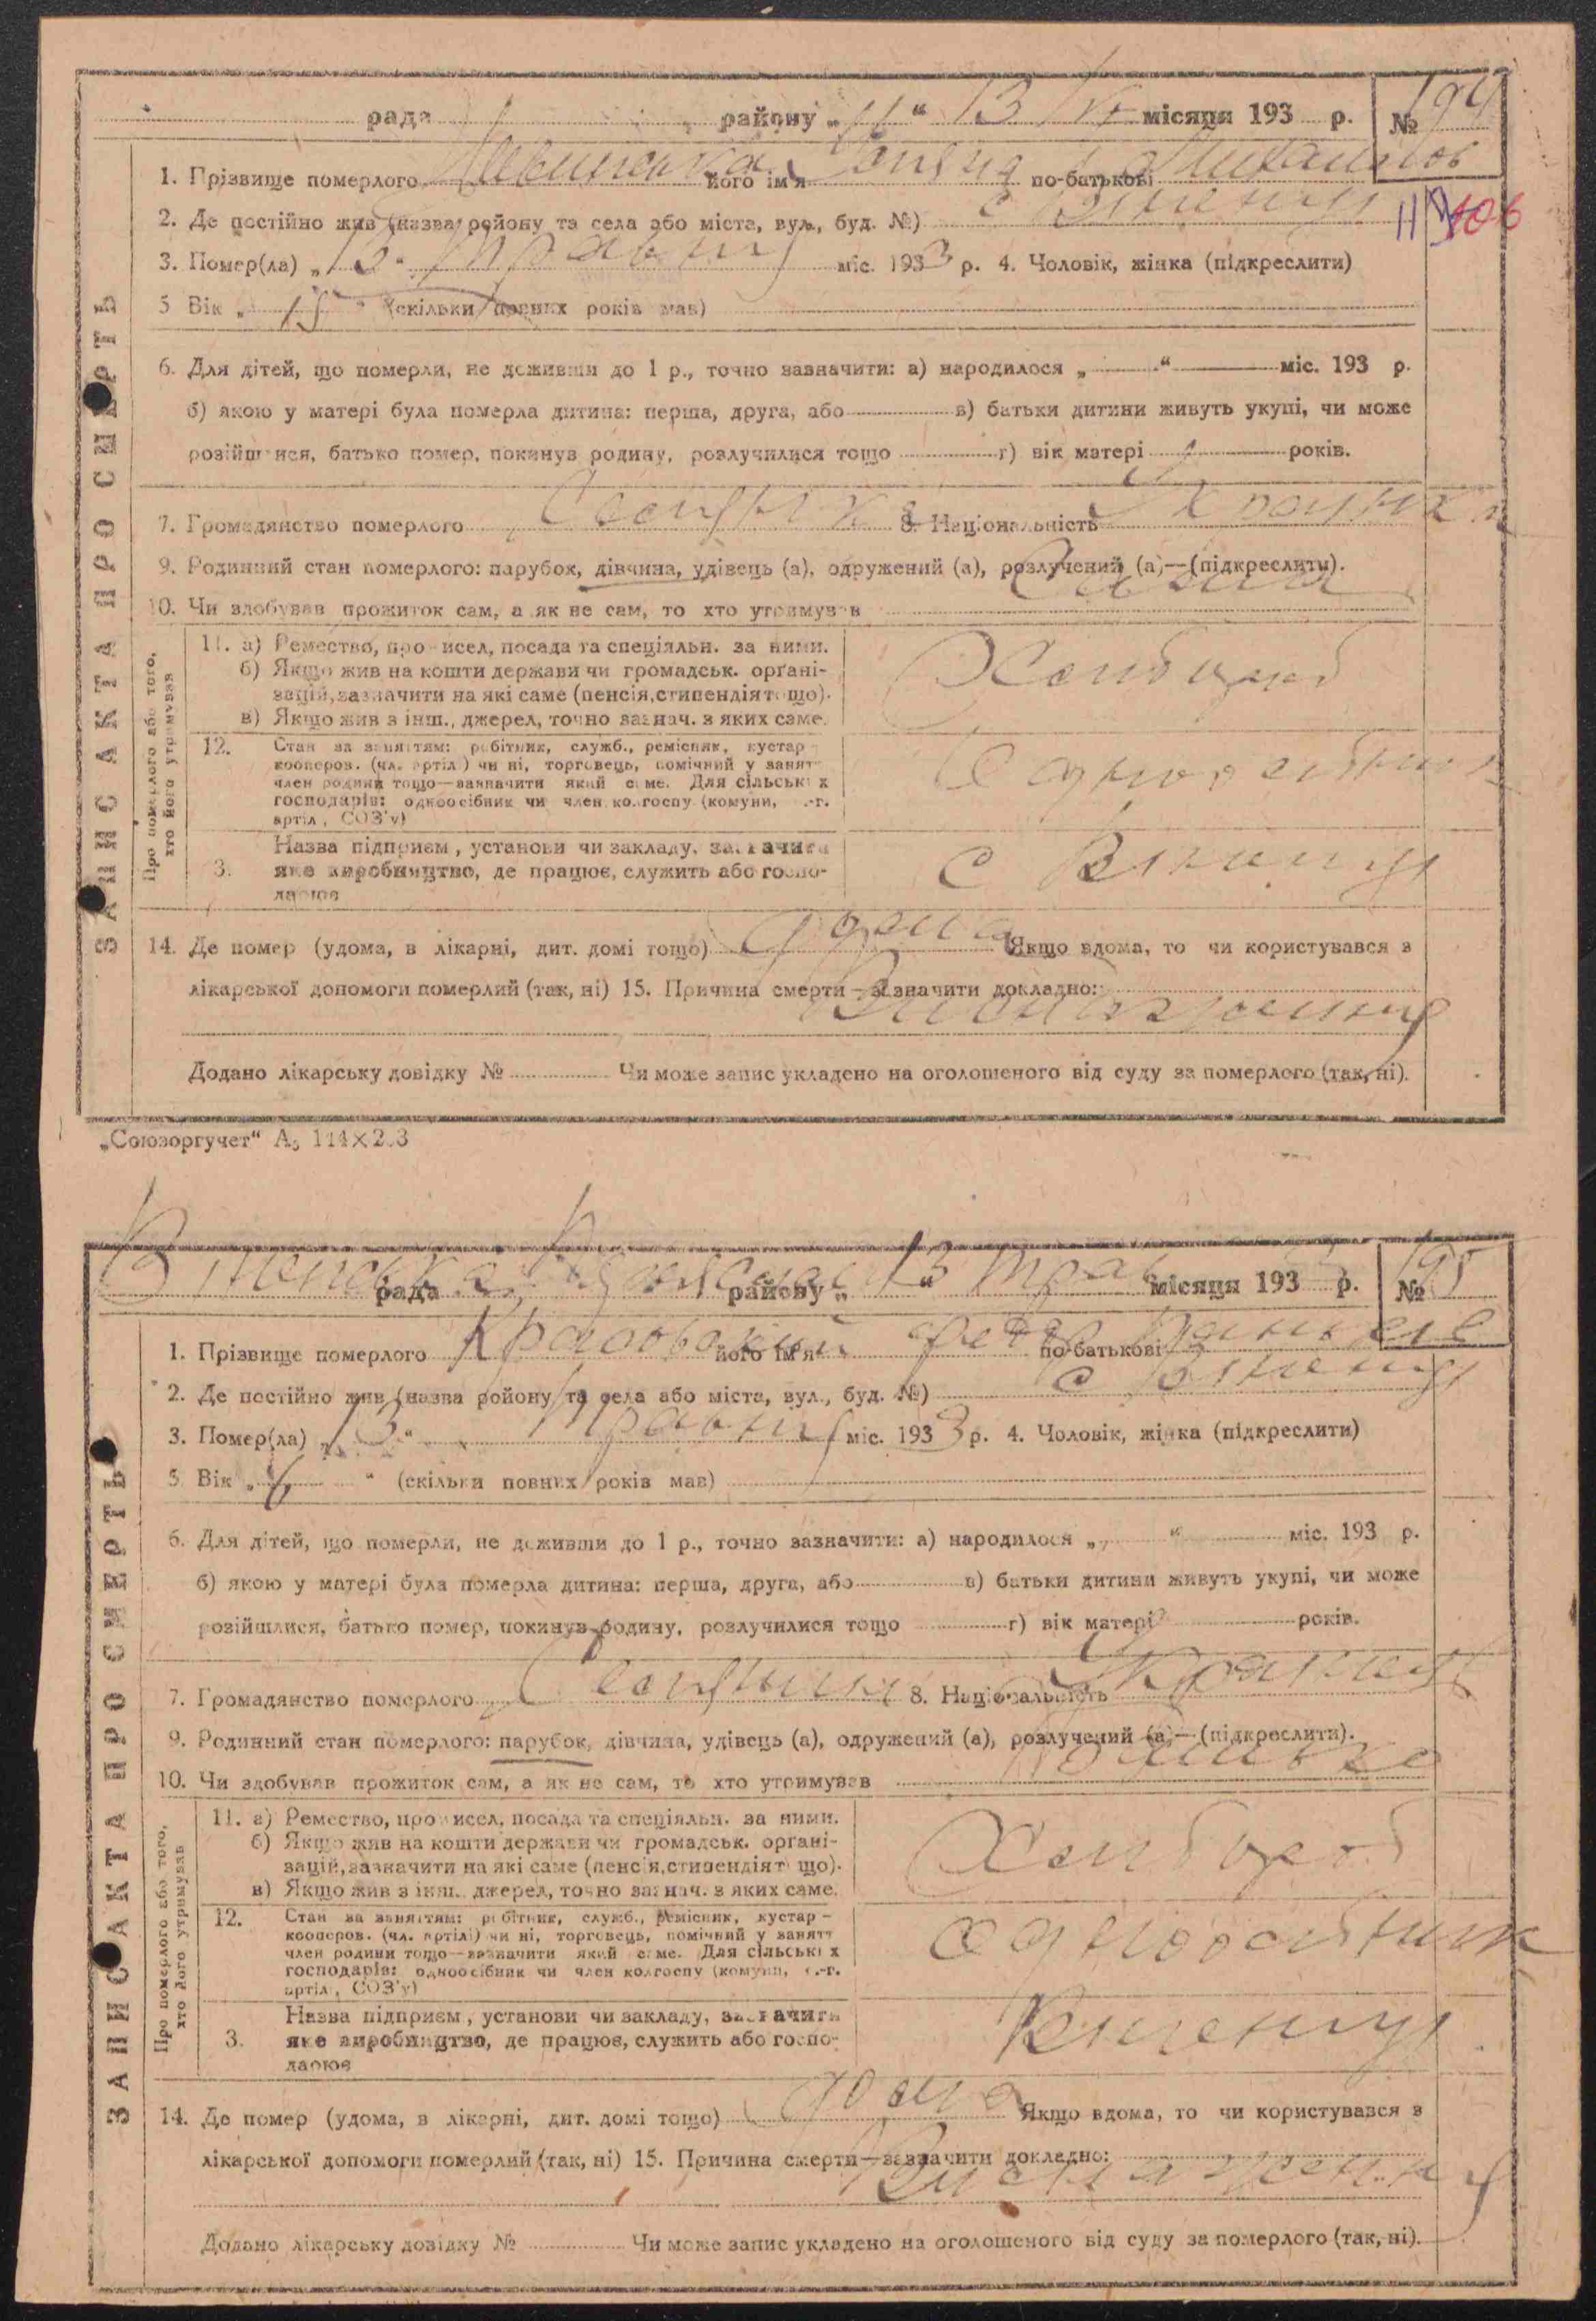 рада району „ 11 “ 13 IV місяця 193 р. № 194
1. Прізвище померлого його ім'я по-батькові
2. Де постійно жив (назва району та села або міста, вул., буд. №) с Вчення
106
3. Помер(ла) „ 13 “ травня міс. 1933 р. 4. Чоловік, жінка (підкреслити)
5 Вік „ 15 “ (скільки повних років мав)
6. Для дітей, що померли, не доживши до 1 р., точно зазначити: а) народилося „ “ міс. 193 р.
б) якою у матері була померла дитина: перша, друга, або в) батьки дитини живуть укупі, чи може
розійшлися, батько помер, покинув родину, розлучилися тощо г) вік матері років.
7. Громадянство померлого 8. Національність Українка
9. Родинний стан померлого: парубок, дівчина, удівець (а), одружений (а), розлучений (а)—(підкреслити).
10. Чи здобував прожиток сам, а як не сам, то хто утримував Сама
ЗАПИС АКТА ПРО СМЕРТЬ
Про померлого або того, хто його утримував
11. а) Ремество, промисел, посада та спеціяльн. за ними.
б) Якщо жив на кошти держави чи громадськ. органі-
зацій, зазначити на які саме (пенсія, стипендія тощо).
в) Якщо жив з інш., джерел, точно зазнач. з яких саме.
Хлібороб
12. Стан за заняттям: робітник, служб., ремісник, кустар -
кооперов. (чл. артілі) чи ні, торговець, помічний у занятт
член родини тощо—зазначити який саме. Для сільських
господарів: одноосібник чи член колгоспу (комуни, с.-г.
артіл, СОЗ'у)
Одноосібник
3. Назва підприєм, установи чи закладу, зазначити
яке виробництво, де працює, служить або госпо-
дарює
14. Де помер (удома, в лікарні, дит. домі тощо) дома Якщо вдома, то чи користувався з
лікарської допомоги померлий (так, ні) 15. Причина смерти—зазначити докладно:
Виснаження
Додано лікарську довідку № Чи може запис укладено на оголошеного від суду за померлого (так, ні).
„Союзоргучет“ А5 114×203
рада району „ 13 “ трав місяця 193 р. № 195
1. Прізвище померлого Красовский його ім'я Федір по-батькові
2. Де постійно жив (назва району та села або міста, вул., буд. №)
3. Помер(ла) „ 13 “ травня міс. 1933 р. 4. Чоловік, жінка (підкреслити)
5 Вік „ 6 “ (скільки повних років мав)
6. Для дітей, що померли, не доживши до 1 р., точно зазначити: а) народилося „ “ міс. 193 р.
б) якою у матері була померла дитина: перша, друга, або в) батьки дитини живуть укупі, чи може
розійшлися, батько помер, покинув родину, розлучилися тощо г) вік матері років.
7. Громадянство померлого 8. Національність Українец
9. Родинний стан померлого: парубок, дівчина, удівець (а), одружений (а), розлучений (а)—(підкреслити).
10. Чи здобував прожиток сам, а як не сам, то хто утримував
ЗАПИС АКТА ПРО СМЕРТЬ
Про померлого або того, хто його утримував
11. а) Ремество, промисел, посада та спеціяльн. за ними.
б) Якщо жив на кошти держави чи громадськ. органі-
зацій, зазначити на які саме (пенсія, стипендія тощо).
в) Якщо жив з інш., джерел, точно зазнач. з яких саме.
Хлібороб
12. Стан за заняттям: робітник, служб., ремісник, кустар -
кооперов. (чл. артілі) чи ні, торговець, помічний у занятт
член родини тощо—зазначити який саме. Для сільських
господарів: одноосібник чи член колгоспу (комуни, с.-г.
артіл, СОЗ'у)
одноосібник
3. Назва підприєм, установи чи закладу, зазначити
яке виробництво, де працює, служить або госпо-
дарює
14. Де помер (удома, в лікарні, дит. домі тощо) дома Якщо вдома, то чи користувався з
лікарської допомоги померлий (так, ні) 15. Причина смерти—зазначити докладно:
Виснаження
Додано лікарську довідку № Чи може запис укладено на оголошеного від суду за померлого (так, ні).